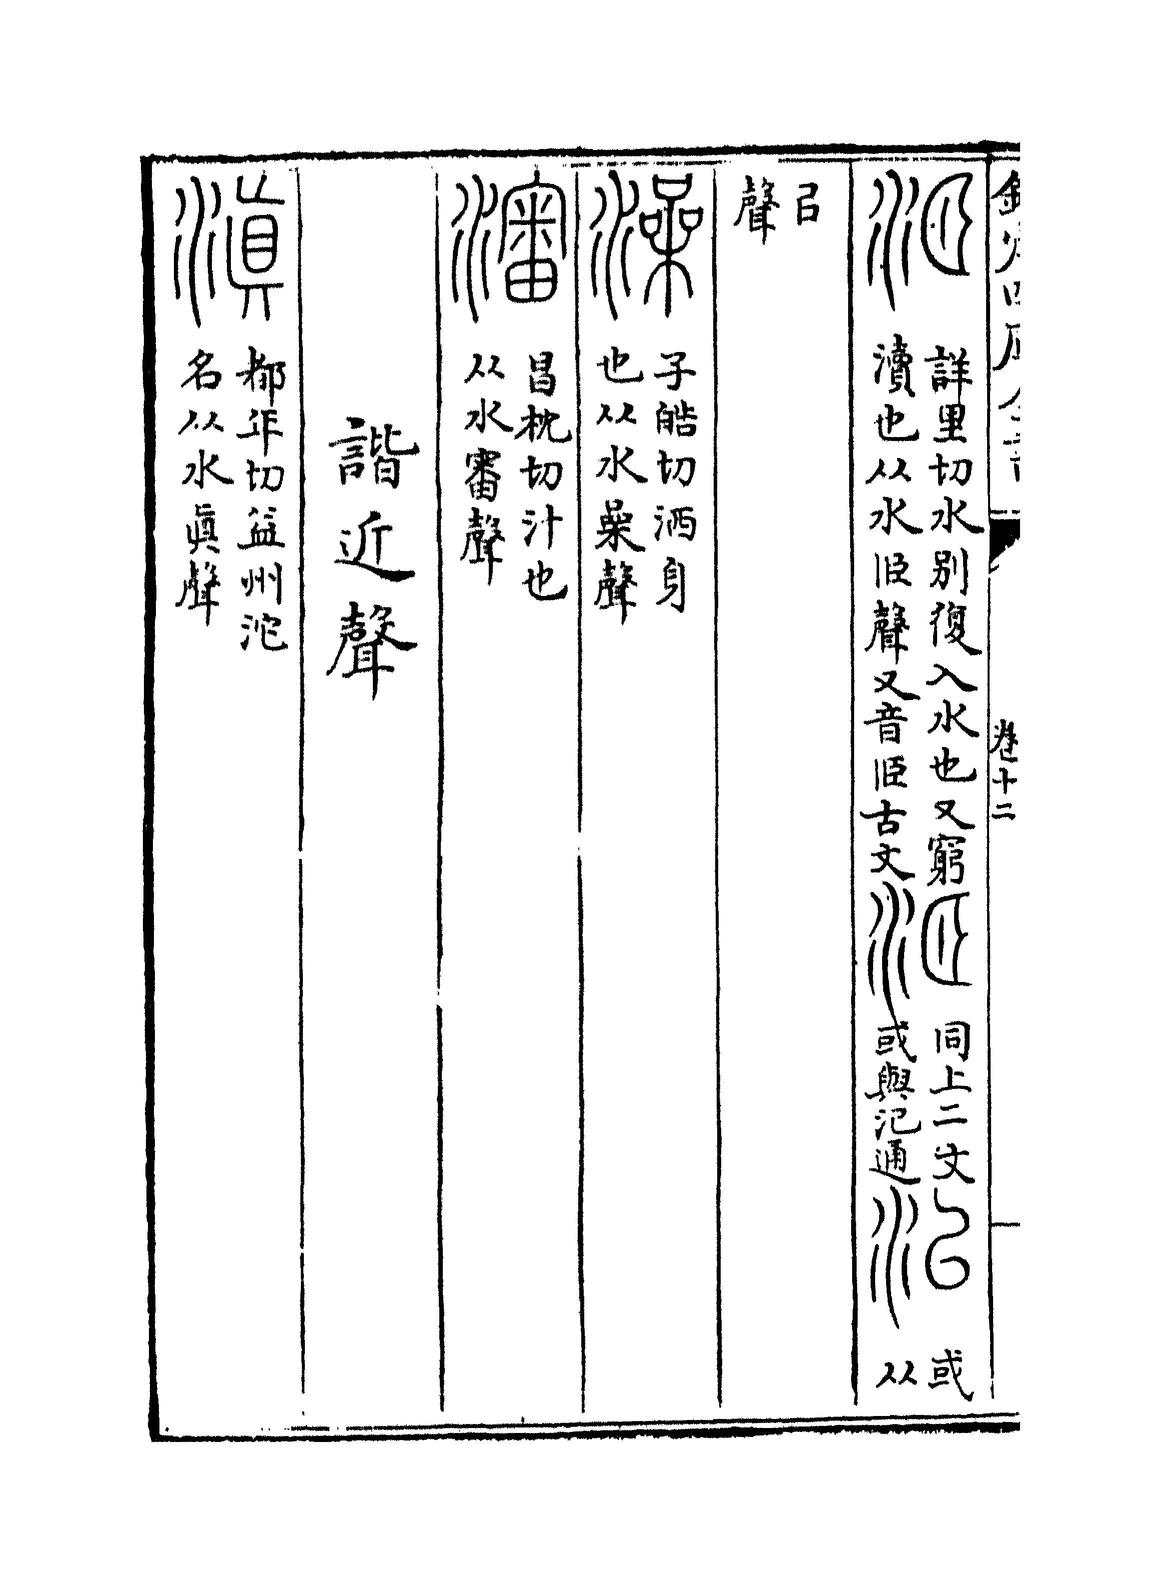 欽定四庫全書
卷十二
洍
詳里切水别復入水也又窮
瀆也从水𦣞聲又音𦣞古文
洍
同上二文
或與汜通
㳑
或
从
㠯
聲
澡
子皓切洒身
也从水喿聲
瀋
昌枕切汁也
从水審聲
諧近聲
滇
都年切益州沱
名从水眞聲